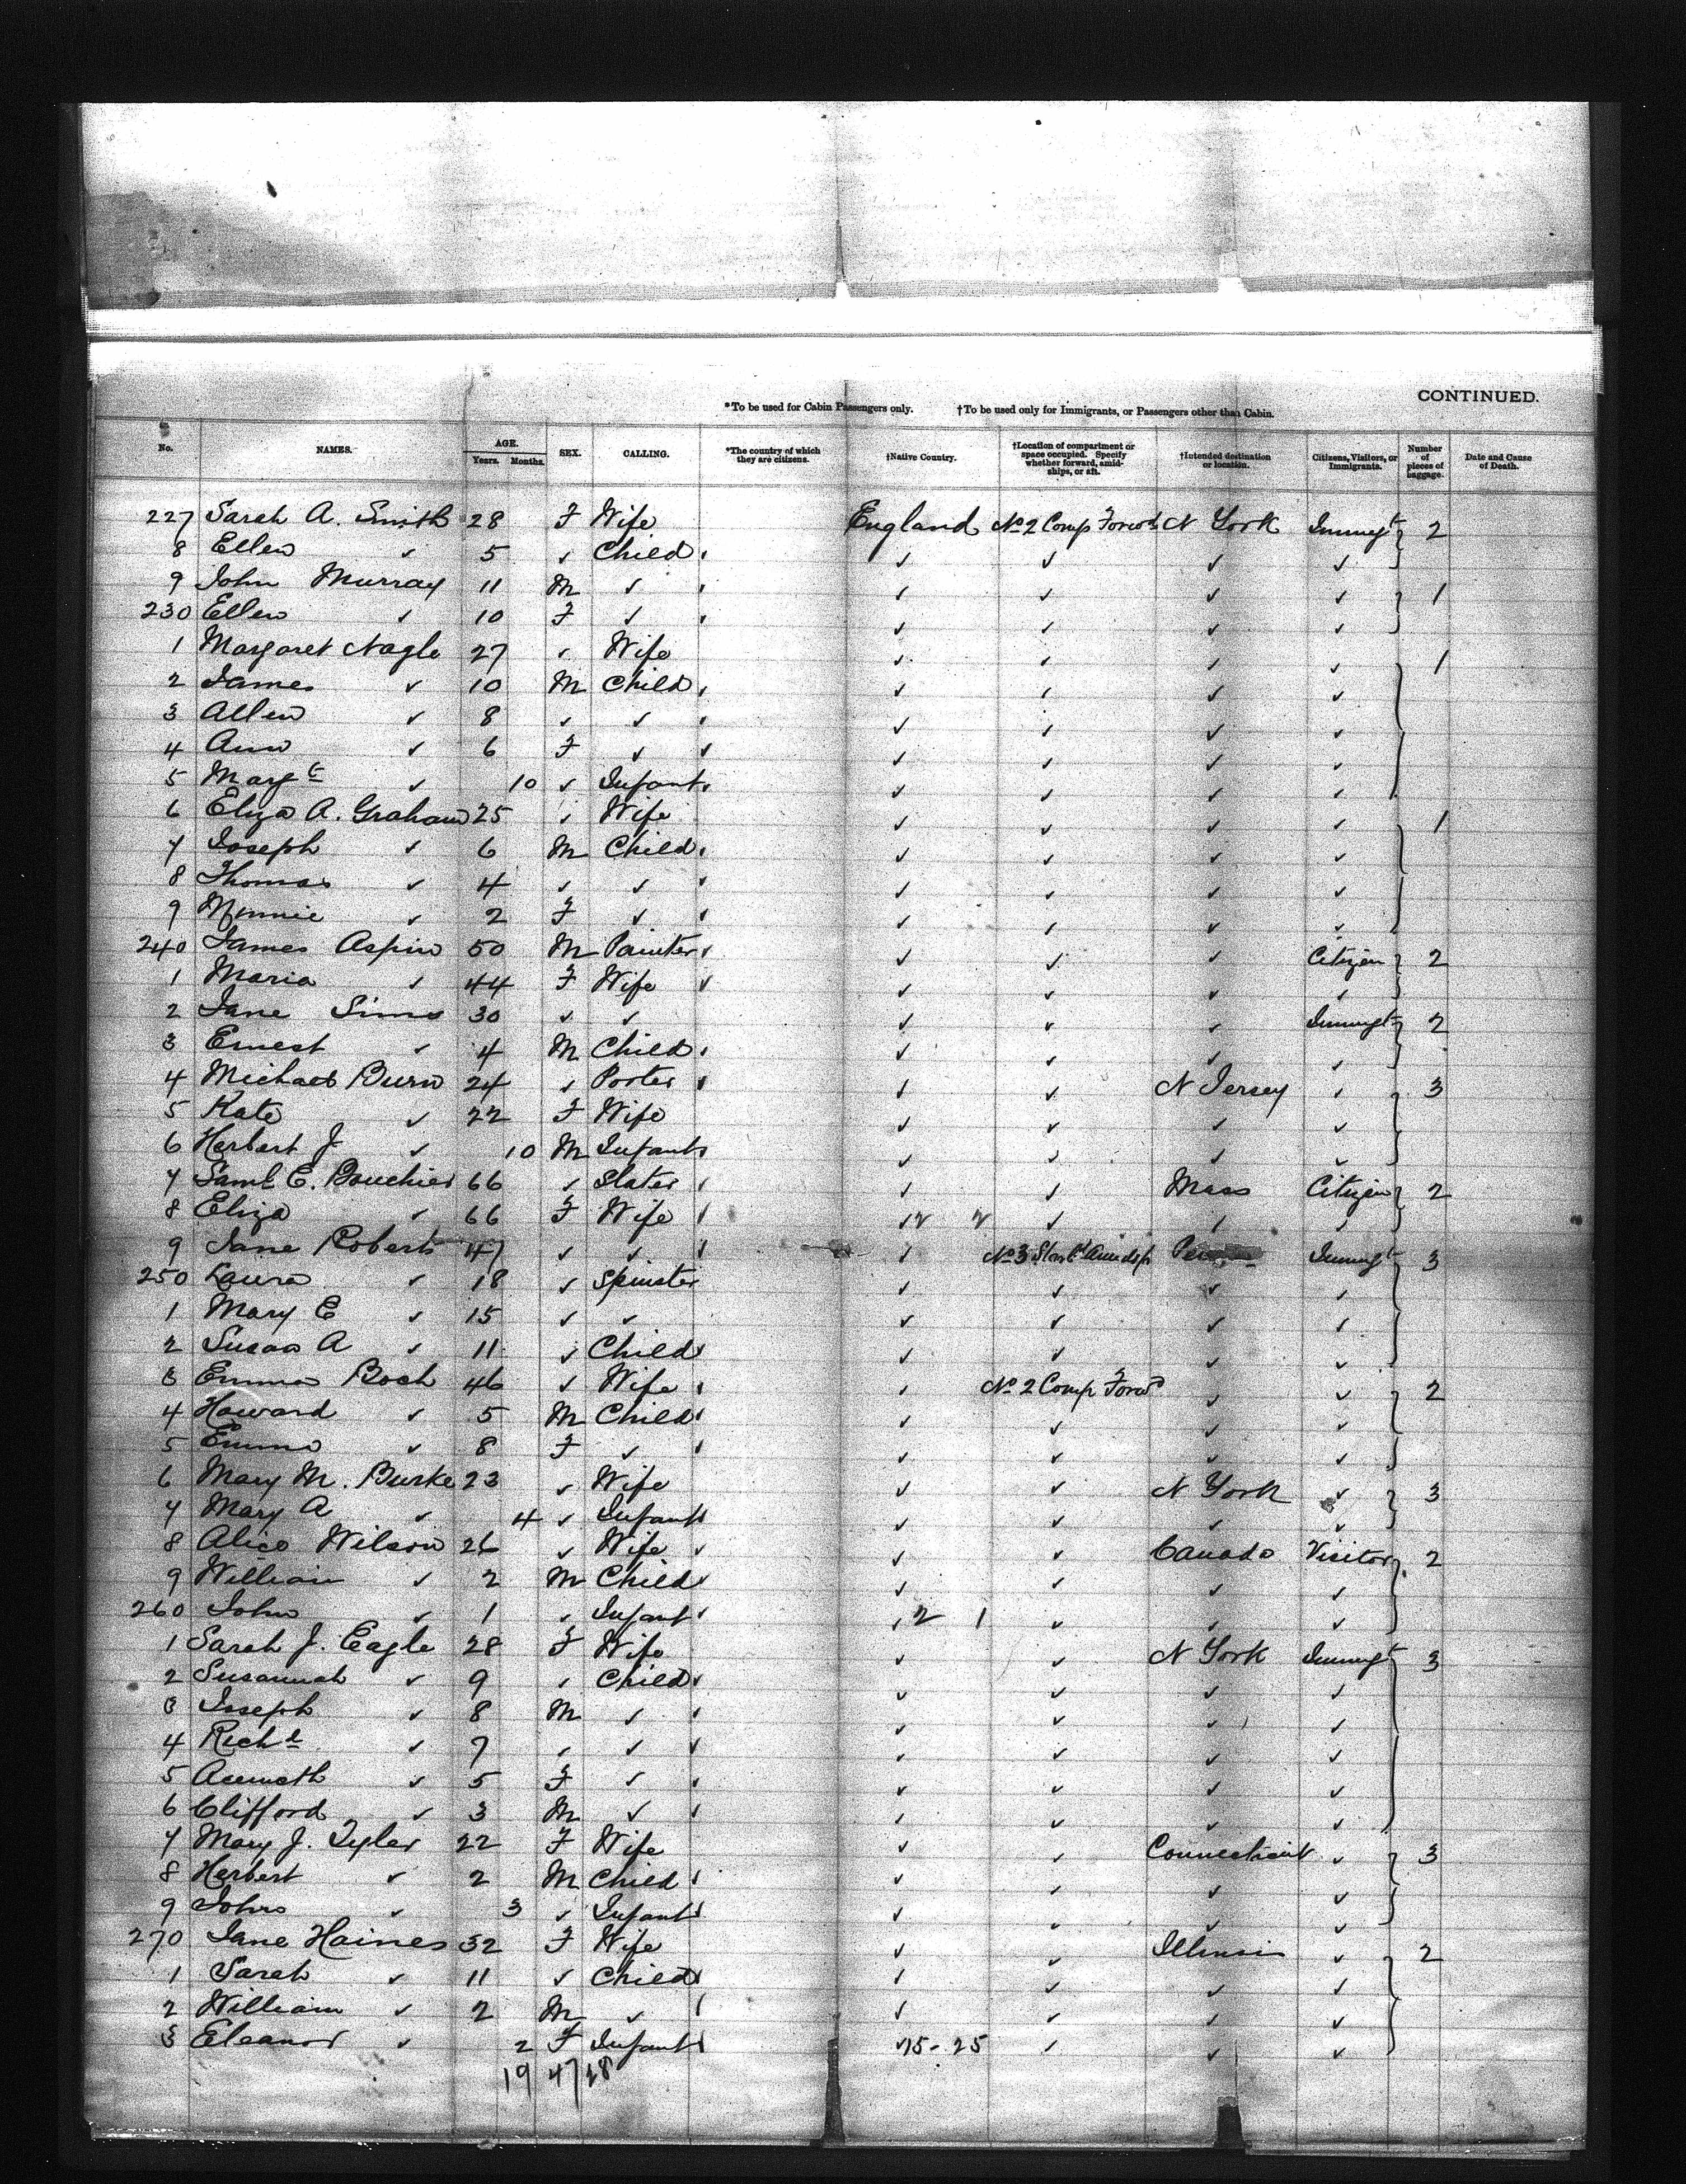 CONTINUED.
*To be used for Cabin Passengers only. †To be used only for Immigrants, or Passengers other than Cabin.
No. NAMES. AGE. Years. Months. SEX. CALLING. *The country of which they are citizens. †Native Country. †Location of compartment or space occupied. Specify whether forward, amidships, or aft. †Intended destination or location. Citizens, Visitors, or Immigrants. Number of pieces of baggage. Date and Cause of Death.
227 Sarah A. Smith 28 F Wife England No 2 Comp Forwd N York Immigt 2
8 Ellen ✓ 5 ✓ Child ✓ ✓ ✓ ✓ ✓
9 John Murray 11 M ✓ ✓ ✓ ✓ ✓ ✓ 1
230 Ellen ✓ 10 F ✓ ✓ ✓ ✓ ✓ ✓
1 Margaret Nagle 27 ✓ Wife ✓ ✓ ✓ ✓ 1
2 James ✓ 10 M Child ✓ ✓ ✓ ✓ ✓
3 Allen ✓ 8 ✓ ✓ ✓ ✓ ✓ ✓ ✓
4 Ann ✓ 6 F ✓ ✓ ✓ ✓ ✓ ✓
5 Margt ✓ 10 ✓ Infant ✓ ✓ ✓ ✓ ✓
6 Eliza A. Graham 25 ✓ Wife ✓ ✓ ✓ ✓ 1
7 Joseph ✓ 6 M Child ✓ ✓ ✓ ✓ ✓
8 Thomas ✓ 4 ✓ ✓ ✓ ✓ ✓ ✓ ✓
9 Minnie ✓ 2 F ✓ ✓ ✓ ✓ ✓ ✓
240 James Aspin 50 M Painter ✓ ✓ ✓ ✓ Citizen 2
1 Maria ✓ 44 F Wife ✓ ✓ ✓ ✓ ✓
2 Jane Sims 30 ✓ ✓ ✓ ✓ ✓ Immigt 2
3 Ernest ✓ 4 M Child ✓ ✓ ✓ ✓ ✓
4 Michael Burn 24 ✓ Porter ✓ ✓ ✓ N Jersey ✓ 3
5 Kate ✓ 22 F Wife ✓ ✓ ✓ ✓
6 Herbert J. ✓ 10 M Infant ✓ ✓ ✓ ✓ ✓
7 Saml E. Bouchier 66 ✓ Slater ✓ ✓ ✓ Mass Citizen 2
8 Eliza ✓ 66 F Wife ✓ ✓ 2 2 ✓ ✓ ✓
9 Jane Roberts 47 ✓ ✓ ✓ ✓ No 3 Starbd Amidsp Immigt 3
250 Laura ✓ 18 ✓ Spinster ✓ ✓ ✓ ✓
1 Mary E ✓ 15 ✓ ✓ ✓ ✓ ✓ ✓
2 Susan A ✓ 11 ✓ Child ✓ ✓ ✓ ✓ ✓
3 Emma Boch 46 ✓ Wife ✓ ✓ No 2 Comp Forwd ✓ ✓ 2
4 Howard ✓ 5 M Child ✓ ✓ ✓ ✓ ✓
5 Emma ✓ 8 F ✓ ✓ ✓ ✓ ✓ ✓
6 Mary M. Burke 23 ✓ Wife ✓ ✓ N York ✓ 3
7 Mary A ✓ 4 ✓ Infant ✓ ✓ ✓ ✓ ✓
8 Alice Wilson 26 ✓ Wife ✓ ✓ ✓ Canada Visitor 2
9 William ✓ 2 M Child ✓ ✓ ✓ ✓ ✓
260 John ✓ 1 ✓ Infant ✓ ✓ 2 1 ✓ ✓ ✓
1 Sarah J. Eagle 28 F Wife ✓ ✓ N York Immigt 3
2 Susannah ✓ 9 ✓ Child ✓ ✓ ✓ ✓ ✓
3 Joseph ✓ 8 M ✓ ✓ ✓ ✓ ✓ ✓
4 Richd ✓ 7 ✓ ✓ ✓ ✓ ✓ ✓ ✓
5 ✓ 5 F ✓ ✓ ✓ ✓ ✓ ✓
6 Clifford ✓ 3 M ✓ ✓ ✓ ✓ ✓ ✓
7 Mary J. Tyler 22 F Wife ✓ ✓ Connecticut ✓ 3
8 Herbert ✓ 2 M Child ✓ ✓ ✓ ✓ ✓
9 John ✓ 3 ✓ Infant ✓ ✓ ✓ ✓ ✓
270 Jane Haines 32 F Wife ✓ ✓ Illinois ✓ 2
1 Sarah ✓ 11 ✓ Child ✓ ✓ ✓ ✓ ✓
2 William ✓ 2 M ✓ ✓ ✓ ✓ ✓ ✓
3 Eleanor ✓ 2 F Infant ✓ 15 - 25 ✓ ✓ ✓
19 47 28